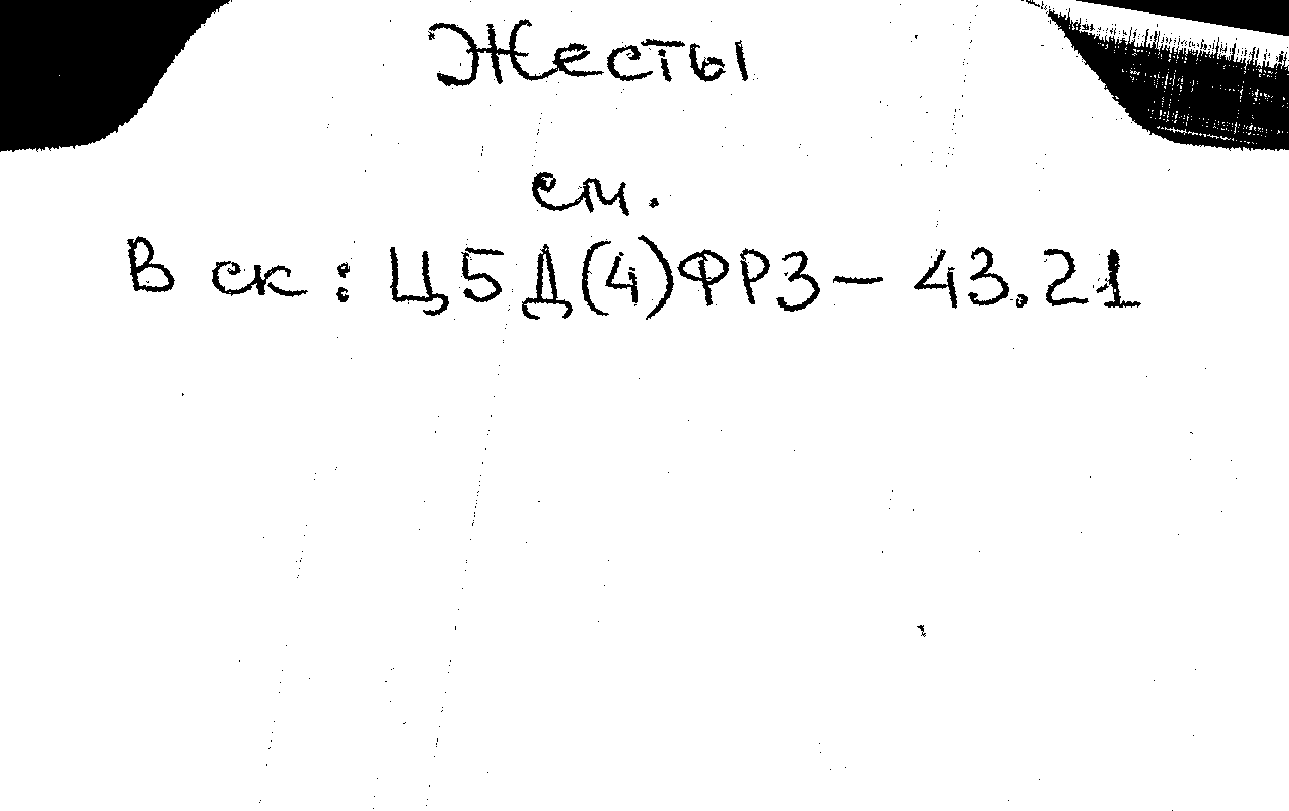 Жесты
см.
В ск: Ц5Д(4)ФРЗ - 43.21